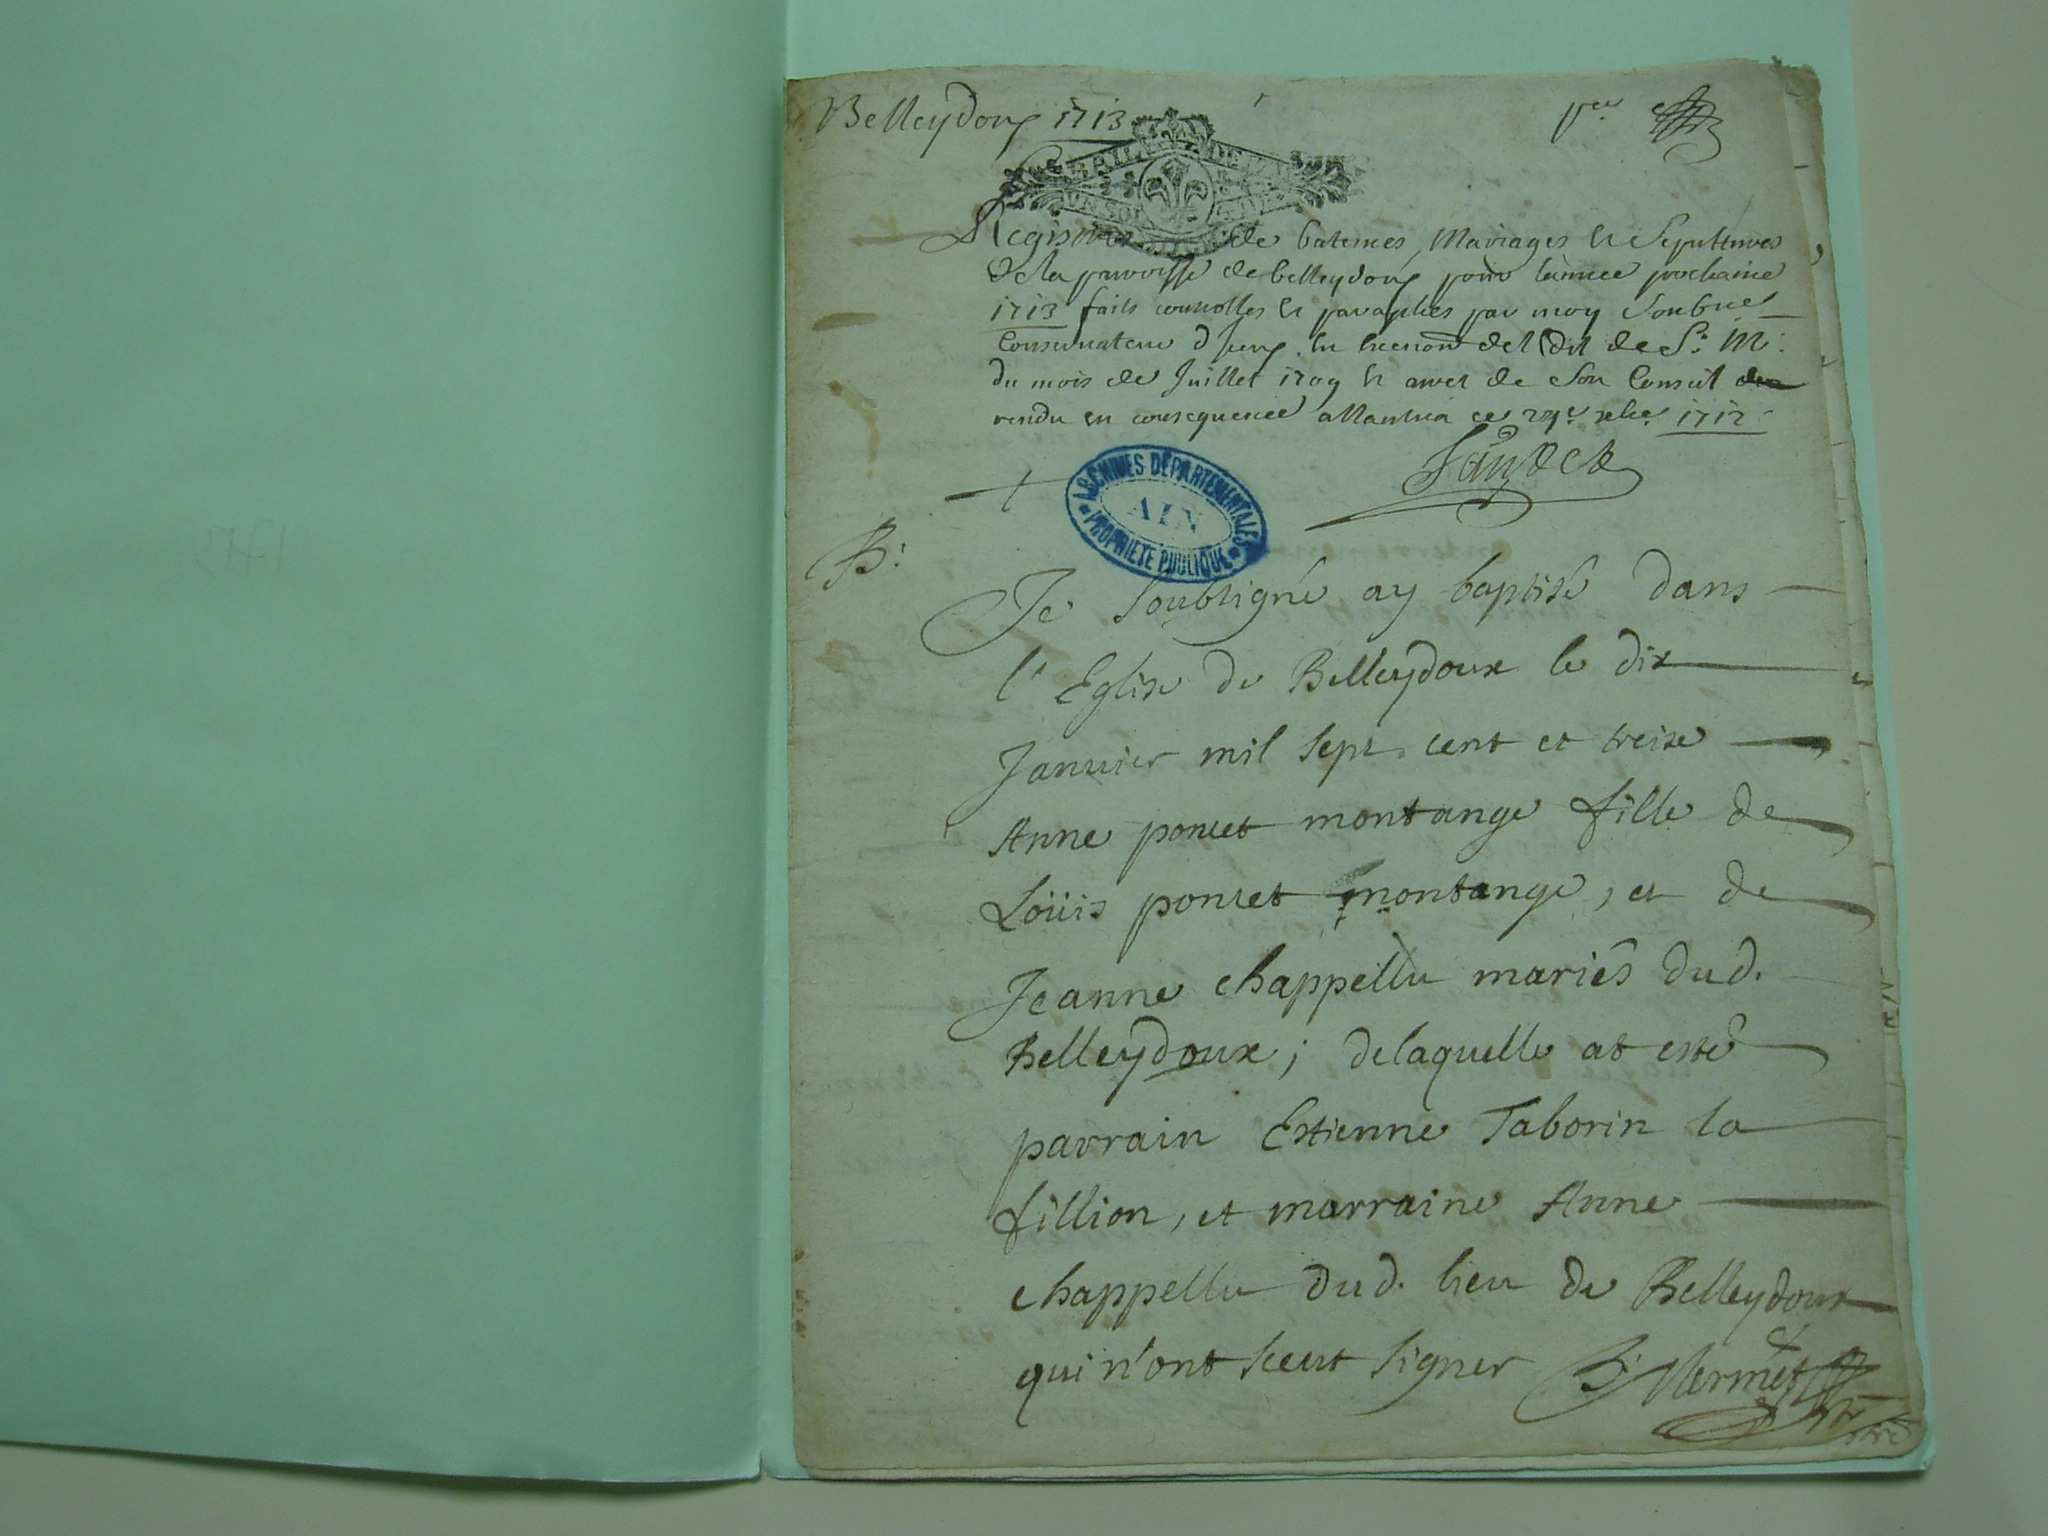 Belleydoux 1713
1
p.er
Registre de batemes, Mariages et Sepultures
de la parroisse de belleydoux pour lannee prochaine
1713 faits cottes et paraphes par moy Soubne
Conservateur en de l'Edit de S. M.
du mois de Juillet 1709 et arret de Son Conseil
rendu en consequence a Nantua ce xbre 1712
ARCHIVES DÉPARTEMENTALES
AIN
PROPRIÉTÉ PUBLIQUE
B:
Je Soubsigné ay baptisé dans
l'Eglise de Belleydoux le dix
Janvier mil sept cent et treise
Anne poncet montange fille de
Loüis poncet montange, et de
Jeanne chappellu mariés dud.
Belleydoux; delaquelle at esté
parrain Estienne Taborin la
fillion, et marraine Anne
chappellu dud. lieu de Belleydoux
qui n'ont sceut signer Vermet
1713